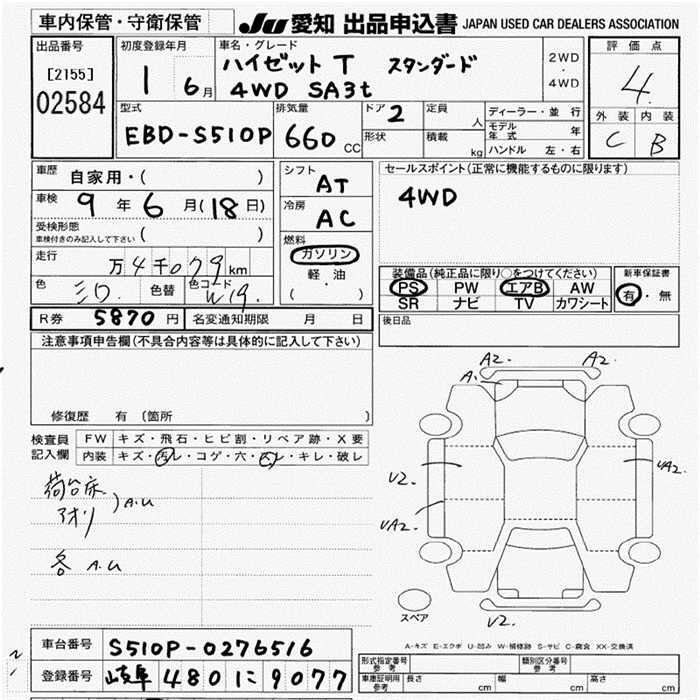 車内保管・守衛保管
JU 愛知 出品申込書 JAPAN USED CAR DEALERS ASSOCIATION
出品番号
[2155]
02584
初度登録年月
1 6月
車名・グレード
ハイゼット T スタンダード
4WD SA3t
2WD
・
4WD
評価点
4
外装 内装
C B
型式
EBD-S510P
排気量
660 CC
ドア 2
形状
定員 人
積載 kg
ディーラー・並行
モデル年式 年
ハンドル 左・右
車歴 自家用・( )
車検 9年 6月(18日)
受検形態
車検付きのみ記入して下さい ( )
走行 万4千079km
色 シロ 色替 色コード W19
シフト
AT
冷房
AC
燃料
ガソリン
軽油
( ・ )
セールスポイント(正常に機能するものに限ります)
4WD
装備品(純正品に限り○をつけてください)
PS PW エアB AW
SR ナビ TV カワシート
新車保証書
有・無
R券 5870円 名変通知期限 月 日
後日品
注意事項申告欄(不具合内容等は具体的に記入して下さい)
修復歴 有 〔箇所 〕
検査員
記入欄
FW キズ・飛石・ヒビ割・リペア跡・X要
内装 キズ・汚レ・コゲ・穴・スレ・キレ・破レ
荷台床
アオリ
)A.U
各 A.U
A2. A2.
A.
U2. UA2.
UA2.
U2.
スペア
A-キズ E-エクボ U-凹み W-補修跡 S-サビ C-腐食 XX-交換済
車台番号 S510P-0276516
登録番号 岐阜 480 に 9077
形式指定番号
参考
類別区分番号
参考
車庫証明用
参考
長さ cm 幅 cm 高さ cm